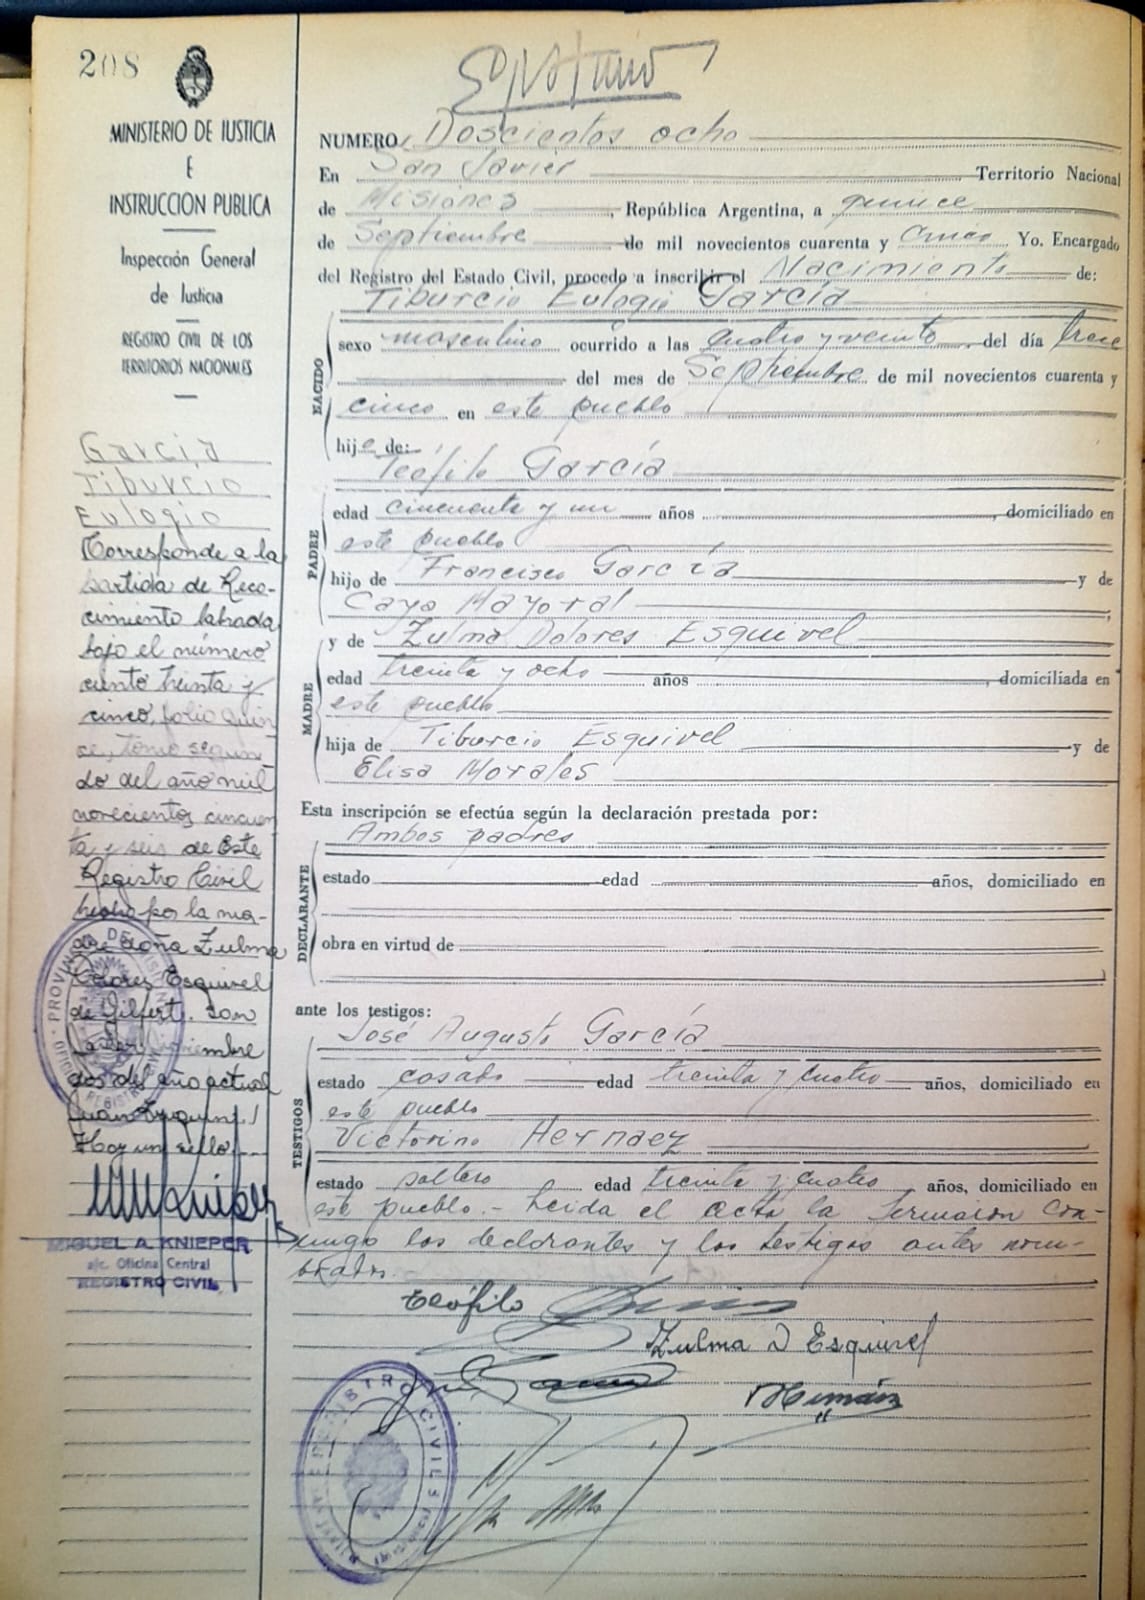 208
MINISTERIO DE JUSTICIA
E
INSTRUCCION PUBLICA
Inspección General
de Justicia
REGISTRO CIVIL DE LOS
TERRITORIOS NACIONALES
García
Tiburcio
Eulogio
Corresponde a la
partida de Reco-
cimiento labrada
bajo el número
ciento treinta y
cinco, folio quin
ce, tomo segun
do del año mil
novecientos cincuen
ta y seis de Este
Registro Civil
hecho por la ma-
dre doña Zulma
Dolores Esquivel
de Gilfert. San
Javier, noviembre
dos del año actual
Juan
Hay un sello
MIGUEL A. KNIEPER
a/c. Oficina Central
REGISTRO CIVIL
NUMERO Doscientos ocho
En San Javier Territorio Nacional
de Misiones, República Argentina, a quince
de Septiembre de mil novecientos cuarenta y cinco Yo. Encargado
del Registro del Estado Civil, procedo a inscribir el Nacimiento de:
Tiburcio Eulogio García
NACIDO
sexo masculino ocurrido a las cuatro y veinte del día trece
del mes de Septiembre de mil novecientos cuarenta y
cinco en este pueblo
hijo de:
Teófilo García
PADRE
edad cincuenta y un años, domiciliado en
este pueblo
hijo de Francisco García y de
Caya Mayoral
MADRE
y de Zulma Dolores Esquivel
edad treinta y ocho años, domiciliada en
este pueblo
hija de Tiburcio Esquivel y de
Elisa Morales
Esta inscripción se efectúa según la declaración prestada por:
Ambos padres
DECLARANTE
estado edad años, domiciliado en
obra en virtud de
ante los testigos:
TESTIGOS
José Augusto García
estado casado edad treinta y cuatro años, domiciliado en
este pueblo
Victorino Hernaez
estado soltero edad treinta y cuatro años, domiciliado en
este pueblo.- Leida el acta la firmaron con-
migo los declarantes y los testigos antes nom-
brados.
Teófilo García
Zulma D Esquivel